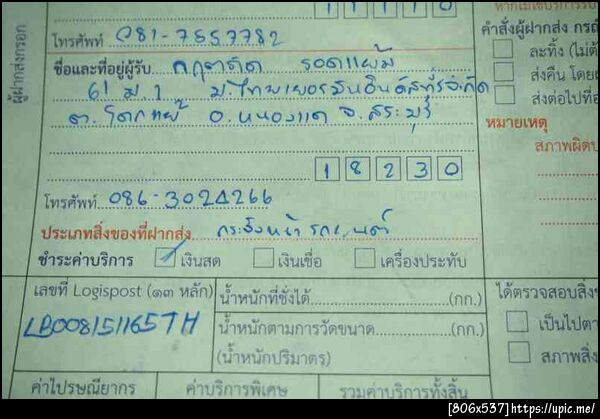 ผู้ฝากส่งกรอก
11110
โทรศัพท์ 081-7557782
ชื่อและที่อยู่ผู้รับ กฤตติต รอดแย้ม
61 ม.1 บ.ไทยเยอรมันอินดัสทรีจำกัด
ต. โคกแย้ อ.หนองแค จ.สระบุรี
18230
โทรศัพท์ 086-3024266
ประเภทสิ่งของที่ฝากส่ง กระจังหน้ารถยนต์
ชำระค่าบริการ เงินสด เงินเชื่อ เครื่องประทับ
เลขที่ Logispost (๑๓ หลัก)
LB008151165TH
น้ำหนักที่ชั่งได้ (กก.)
น้ำหนักตามการวัดขนาด (กก.)
(น้ำหนักปริมาตร)
ค่าไปรษณียากร
ค่าบริการพิเศษ
รวมค่าบริการทั้งสิ้น
คำสั่งผู้ฝากส่ง กรณี
ละทิ้ง (ไม่ต้
ส่งคืน โดย
ส่งต่อไปที่อ
หมายเหตุ
สภาพผิดป
ได้ตรวจสอบสิ่งข
เป็นไปตา
สภาพสิ่ง
[806x537]https://upic.me/